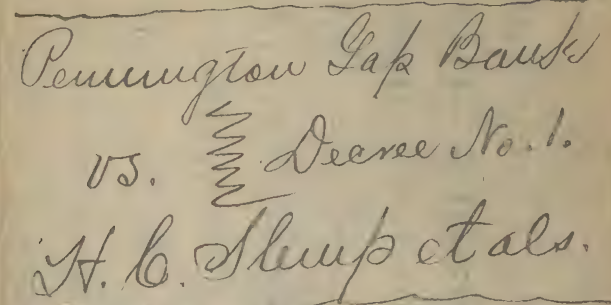 Pennington Gap Bank
vs. Decree No. 1.
H. C. Slemp et als.